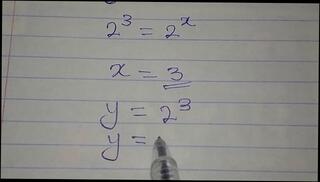 2³ = 2ˣ
x = 3
y = 2³
y =